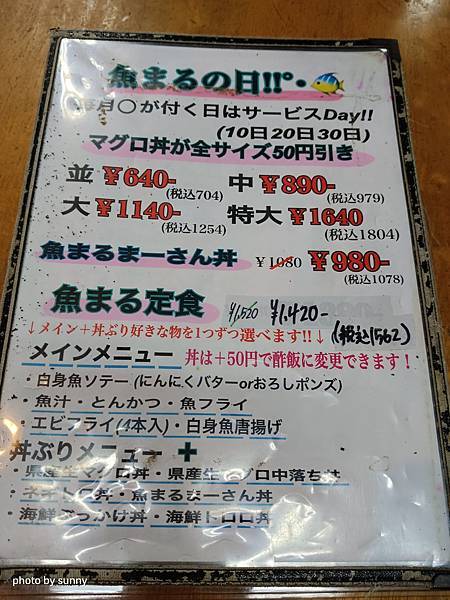 魚まるの日!!°・
毎月〇が付く日はサービスDay!!
(10日20日30日)
マグロ丼が全サイズ50円引き
並 ¥640- 中 ¥890-
(税込704) (税込979)
大 ¥1140- 特大 ¥1640
(税込1254) (税込1804)
魚まるまーさん丼 ¥1080 ¥980-
(税込1078)
魚まる定食 ¥1,520 ¥1,420-
(税込1562)
↓メイン+丼ぶり好きな物を1つずつ選べます!!↓
メインメニュー 丼は+50円で酢飯に変更できます!
・白身魚ソテー(にんにくバターorおろしポンズ)
・魚汁・とんかつ・魚フライ
・エビフライ(4本入)・白身魚唐揚げ
丼ぶりメニュー +
・県産生マグロ丼・県産生マグロ中落ち丼
・ネギトロ丼・魚まるまーさん丼
・海鮮ぶっかけ丼・海鮮トロロ丼
photo by sunny